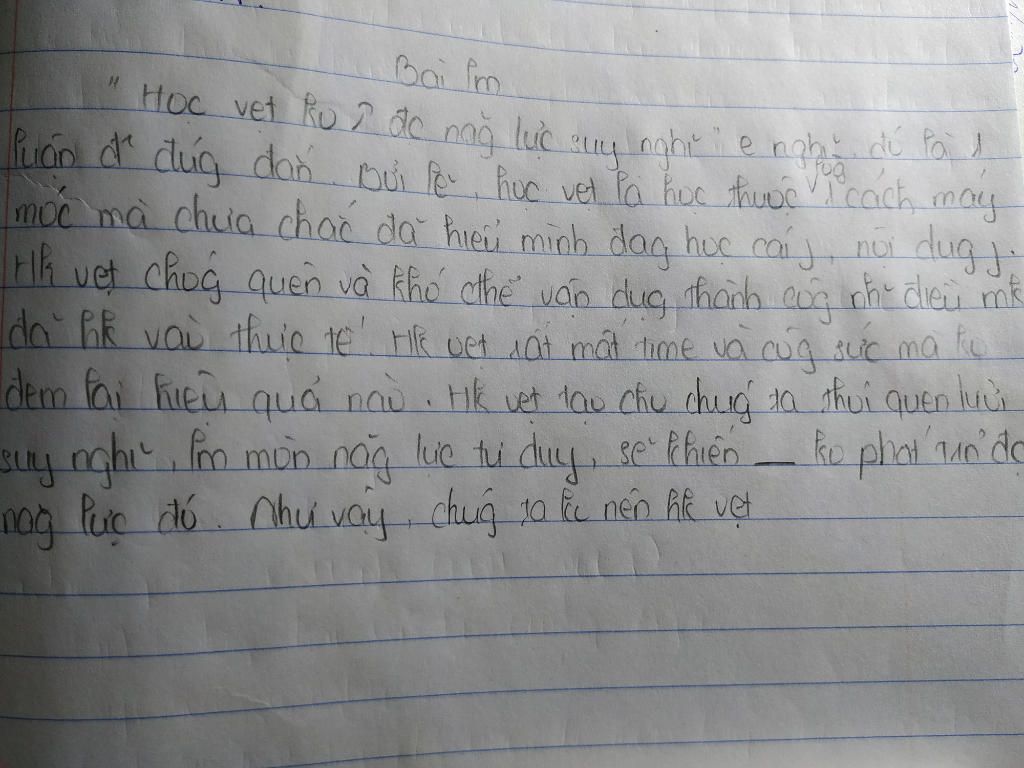 Bài lm
"Học vẹt ko ↗ đc năg lực suy nghĩ" e nghĩ đó là 1
luận đ' đúg đắn. Bởi lẽ, học vẹt là học thuộc lòg 1 cách máy
móc mà chưa chắc đã hiểu mình đag học cái j, nội dug j.
Hk vẹt chóg quên và khó cthể vận dụg thành côg nh~ điều mk
đã hk vào thực tế. Hk vẹt rất mất time và côg sức mà ko
đem lại hiệu quả nào. Hk vẹt tạo cho chúg ta thói quen lười
suy nghĩ, lm mòn năg lực tư duy, sẽ khiến — ko phát triển đc
năg lực đó. Như vậy, chúg ta ko nên hk vẹt